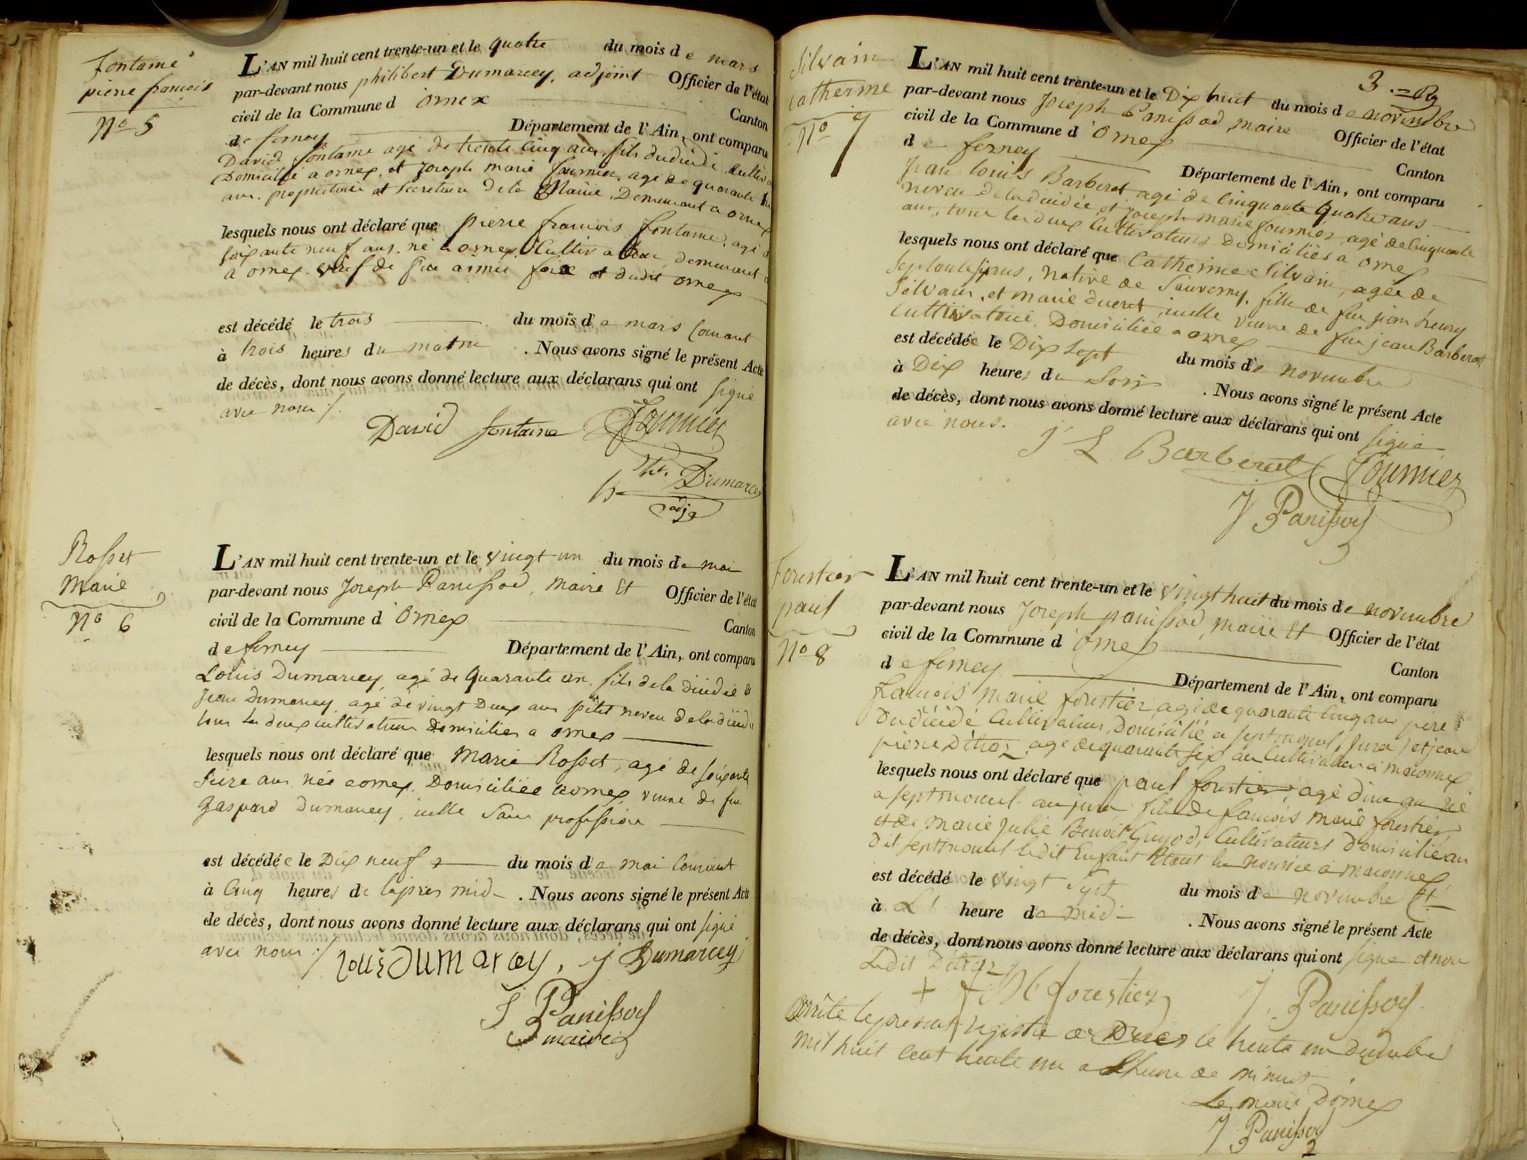 fontaine
pierre francois
No 5
L'AN mil huit cent trente-un et le quatre du mois de mars
par-devant nous philibert Dumarcey, adjoint Officier de l'état
civil de la Commune d'ornex Canton
de ferney Département de l'Ain, ont comparu
David fontaine agé de trente cinq ans, fils du décédé cultiv
Domicilié a ornex, et Joseph marie fournier, agé de quarante
ans, proprietaire et Secretaire de la Mairie, Demeurant a ornex
lesquels nous ont déclaré que pierre francois fontaine, agé d
soixante neuf ans, né a ornex, Cultivateur, demeurant
a ornex
est décédé le trois du mois de mars Courant
à trois heures du matin . Nous avons signé le présent Acte
de décès, dont nous avons donné lecture aux déclarans qui ont signé
avec nous
David fontaine Fournier
Ph. Dumarcey
adj
Rosset
Marie
No 6
L'AN mil huit cent trente-un et le vingt un du mois de mai
par-devant nous Joseph Panissod, Maire Et Officier de l'état
civil de la Commune d'Ornex Canton
de ferney Département de l'Ain, ont comparu
Louis Dumarcey, agé de quarante un, fils de la décédée &
Jean Dumarcey, agé de vingt Deux ans petit neveu de la décédé
tous les deux cultivateurs Domiciliés a ornex
lesquels nous ont déclaré que Marie Rosset, agé de soixante
seize ans née a ornex, Domiciliée a ornex veuve de feu
Gaspard Dumarcey, icelle Sans profession
est décédée le Dix neuf du mois de mai Courant
à Cinq heures de l'après midi . Nous avons signé le présent Acte
de décès, dont nous avons donné lecture aux déclarans qui ont signé
avec nous
Louis Dumarcey, J Dumarcey
J Panissod
maire
3
Silvain
Catherine
No 7
L'AN mil huit cent trente-un et le Dix huit du mois de novembre
par-devant nous Joseph Panissod, maire Officier de l'état
civil de la Commune d'Ornex Canton
de ferney Département de l'Ain, ont comparu
Jean Louis Barberat agé de Cinquante quatre ans
neveu de la décédée, et Joseph marie fournier, agé de Cinquante
ans, tous les deux Cultivateurs Domiciliés a ornex
lesquels nous ont déclaré que Catherine Silvain, agée de
septante ans, native de Sauverny, fille de feu jean henry
Silvain, et marie ducret, icelle veuve de feu jean Barberat
Cultivatrice, Domiciliée a ornex
est décédée le Dix Sept du mois de novembre
à Dix heures du Soir . Nous avons signé le présent Acte
de décès, dont nous avons donné lecture aux déclarans qui ont signé
avec nous.
J L Barberat Fournier
J Panissod
Forestier
paul
No 8
L'AN mil huit cent trente-un et le vingt huit du mois de novembre
par-devant nous Joseph panissod, maire Et Officier de l'état
civil de la Commune d'Ornex Canton
de ferney Département de l'Ain, ont comparu
francois marie forestier, agé de quarante Cinq ans pere
Du décédé Cultivateur, Domicilié a septmoncel, Jura, et jean
pierre Détraz, agé de quarante six ans Cultivateur a maconnex
lesquels nous ont déclaré que paul forestier, agé d'un an né
a septmoncel au jura fils de francois marie forestier
et de Marie Julie Benoit Guyod, Cultivateurs Domiciliés au
dit septmoncel ledit Enfant Etant en nourrice a maconnex
est décédé le vingt sept du mois de novembre
à L' heure de midi . Nous avons signé le présent Acte
de décès, dont nous avons donné lecture aux déclarans qui ont signé et non
Ledit Détraz
+ f M forestier J. Panissod
Arrêté le present registre de Décès le trente un decembre
mil huit cent trente un a l'heure de minuit
Le maire D'ornex
J Panissod
2